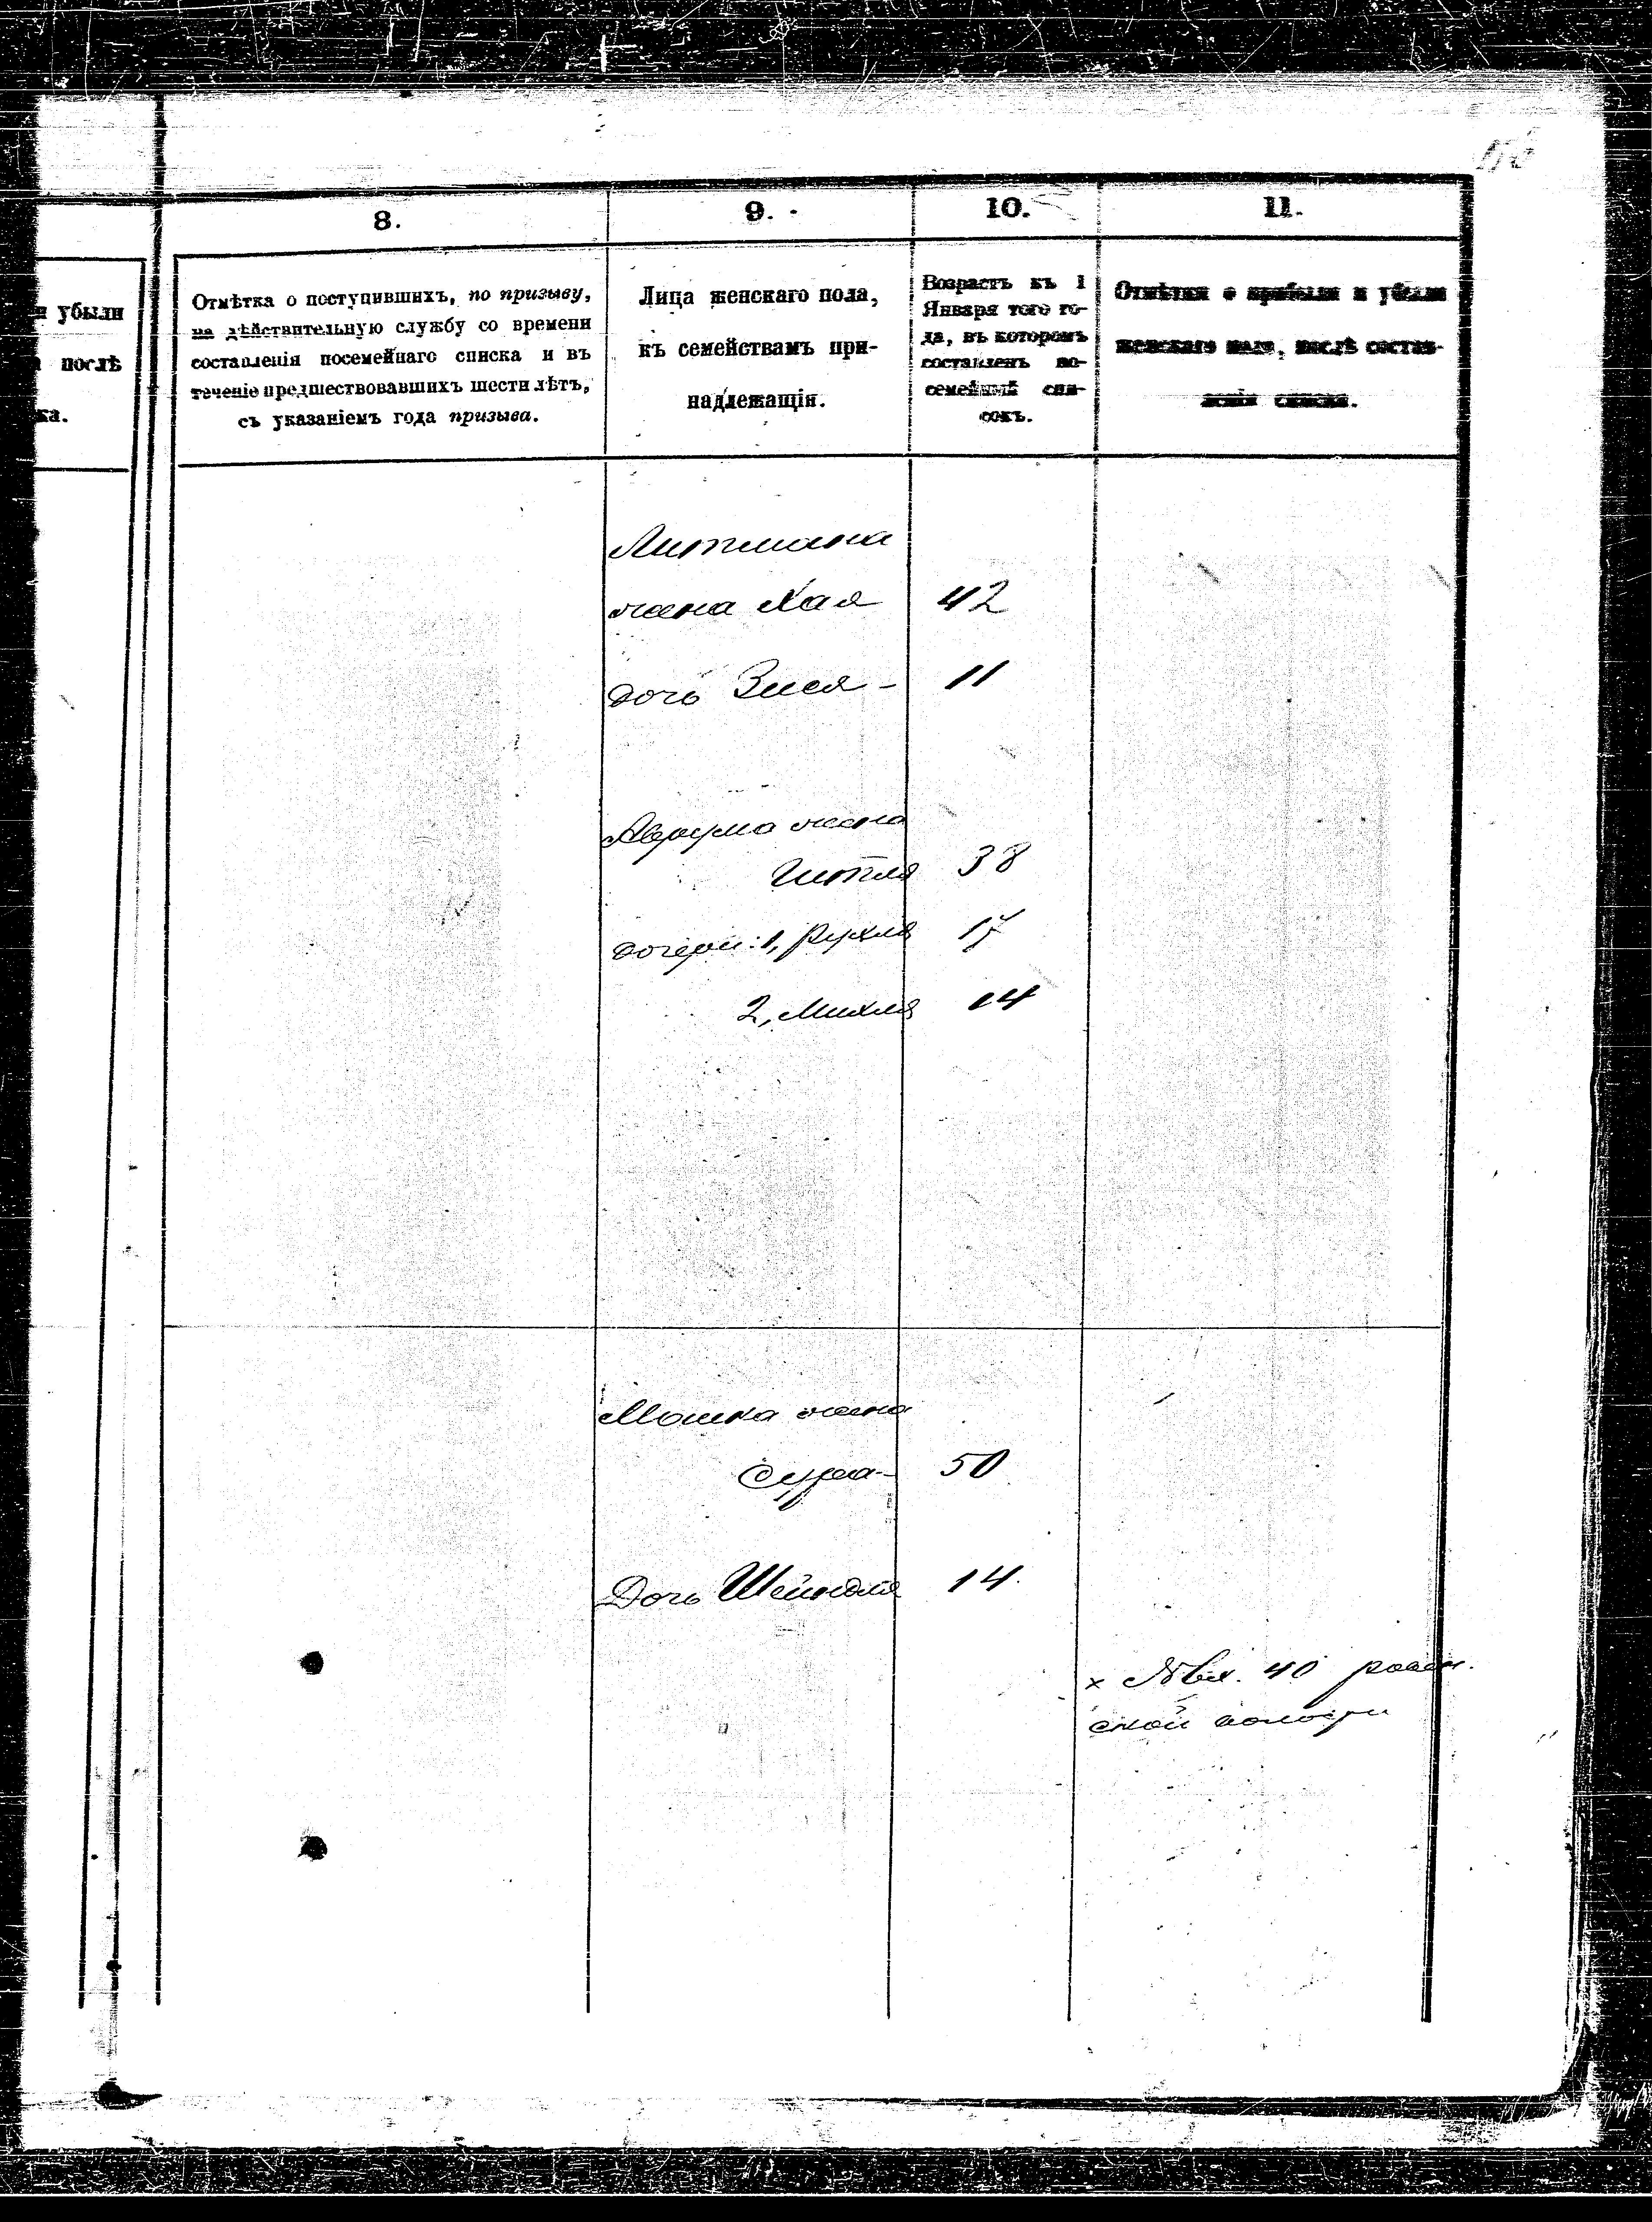 8.
9.
10.
11.
убыли
послѣ
ка.
Отмѣтка о поступившихъ, по призыву,
на дѣйствительную службу со времени
составленія посемейнаго списка и въ
теченіе предшествовавшихъ шести лѣтъ,
съ указаніемъ года призыва.
Лица женскаго пола,
къ семействамъ при-
надлежащія.
Возрастъ къ 1
Января того го-
да, въ которомъ
составленъ по-
семейный спи-
сокъ.
Отмѣтки о прибыли и убыли
женскаго пола, послѣ состав-
ленія списка.
Литмана
жена Хая 42
дочь Зися - 11
Аврума жена
Гитля 38
дочери: 1, Рухля 17
2, Михля 14
Мошка жена
Сура - 50
Дочь Шейндля 14.
х № вх. 40
ской